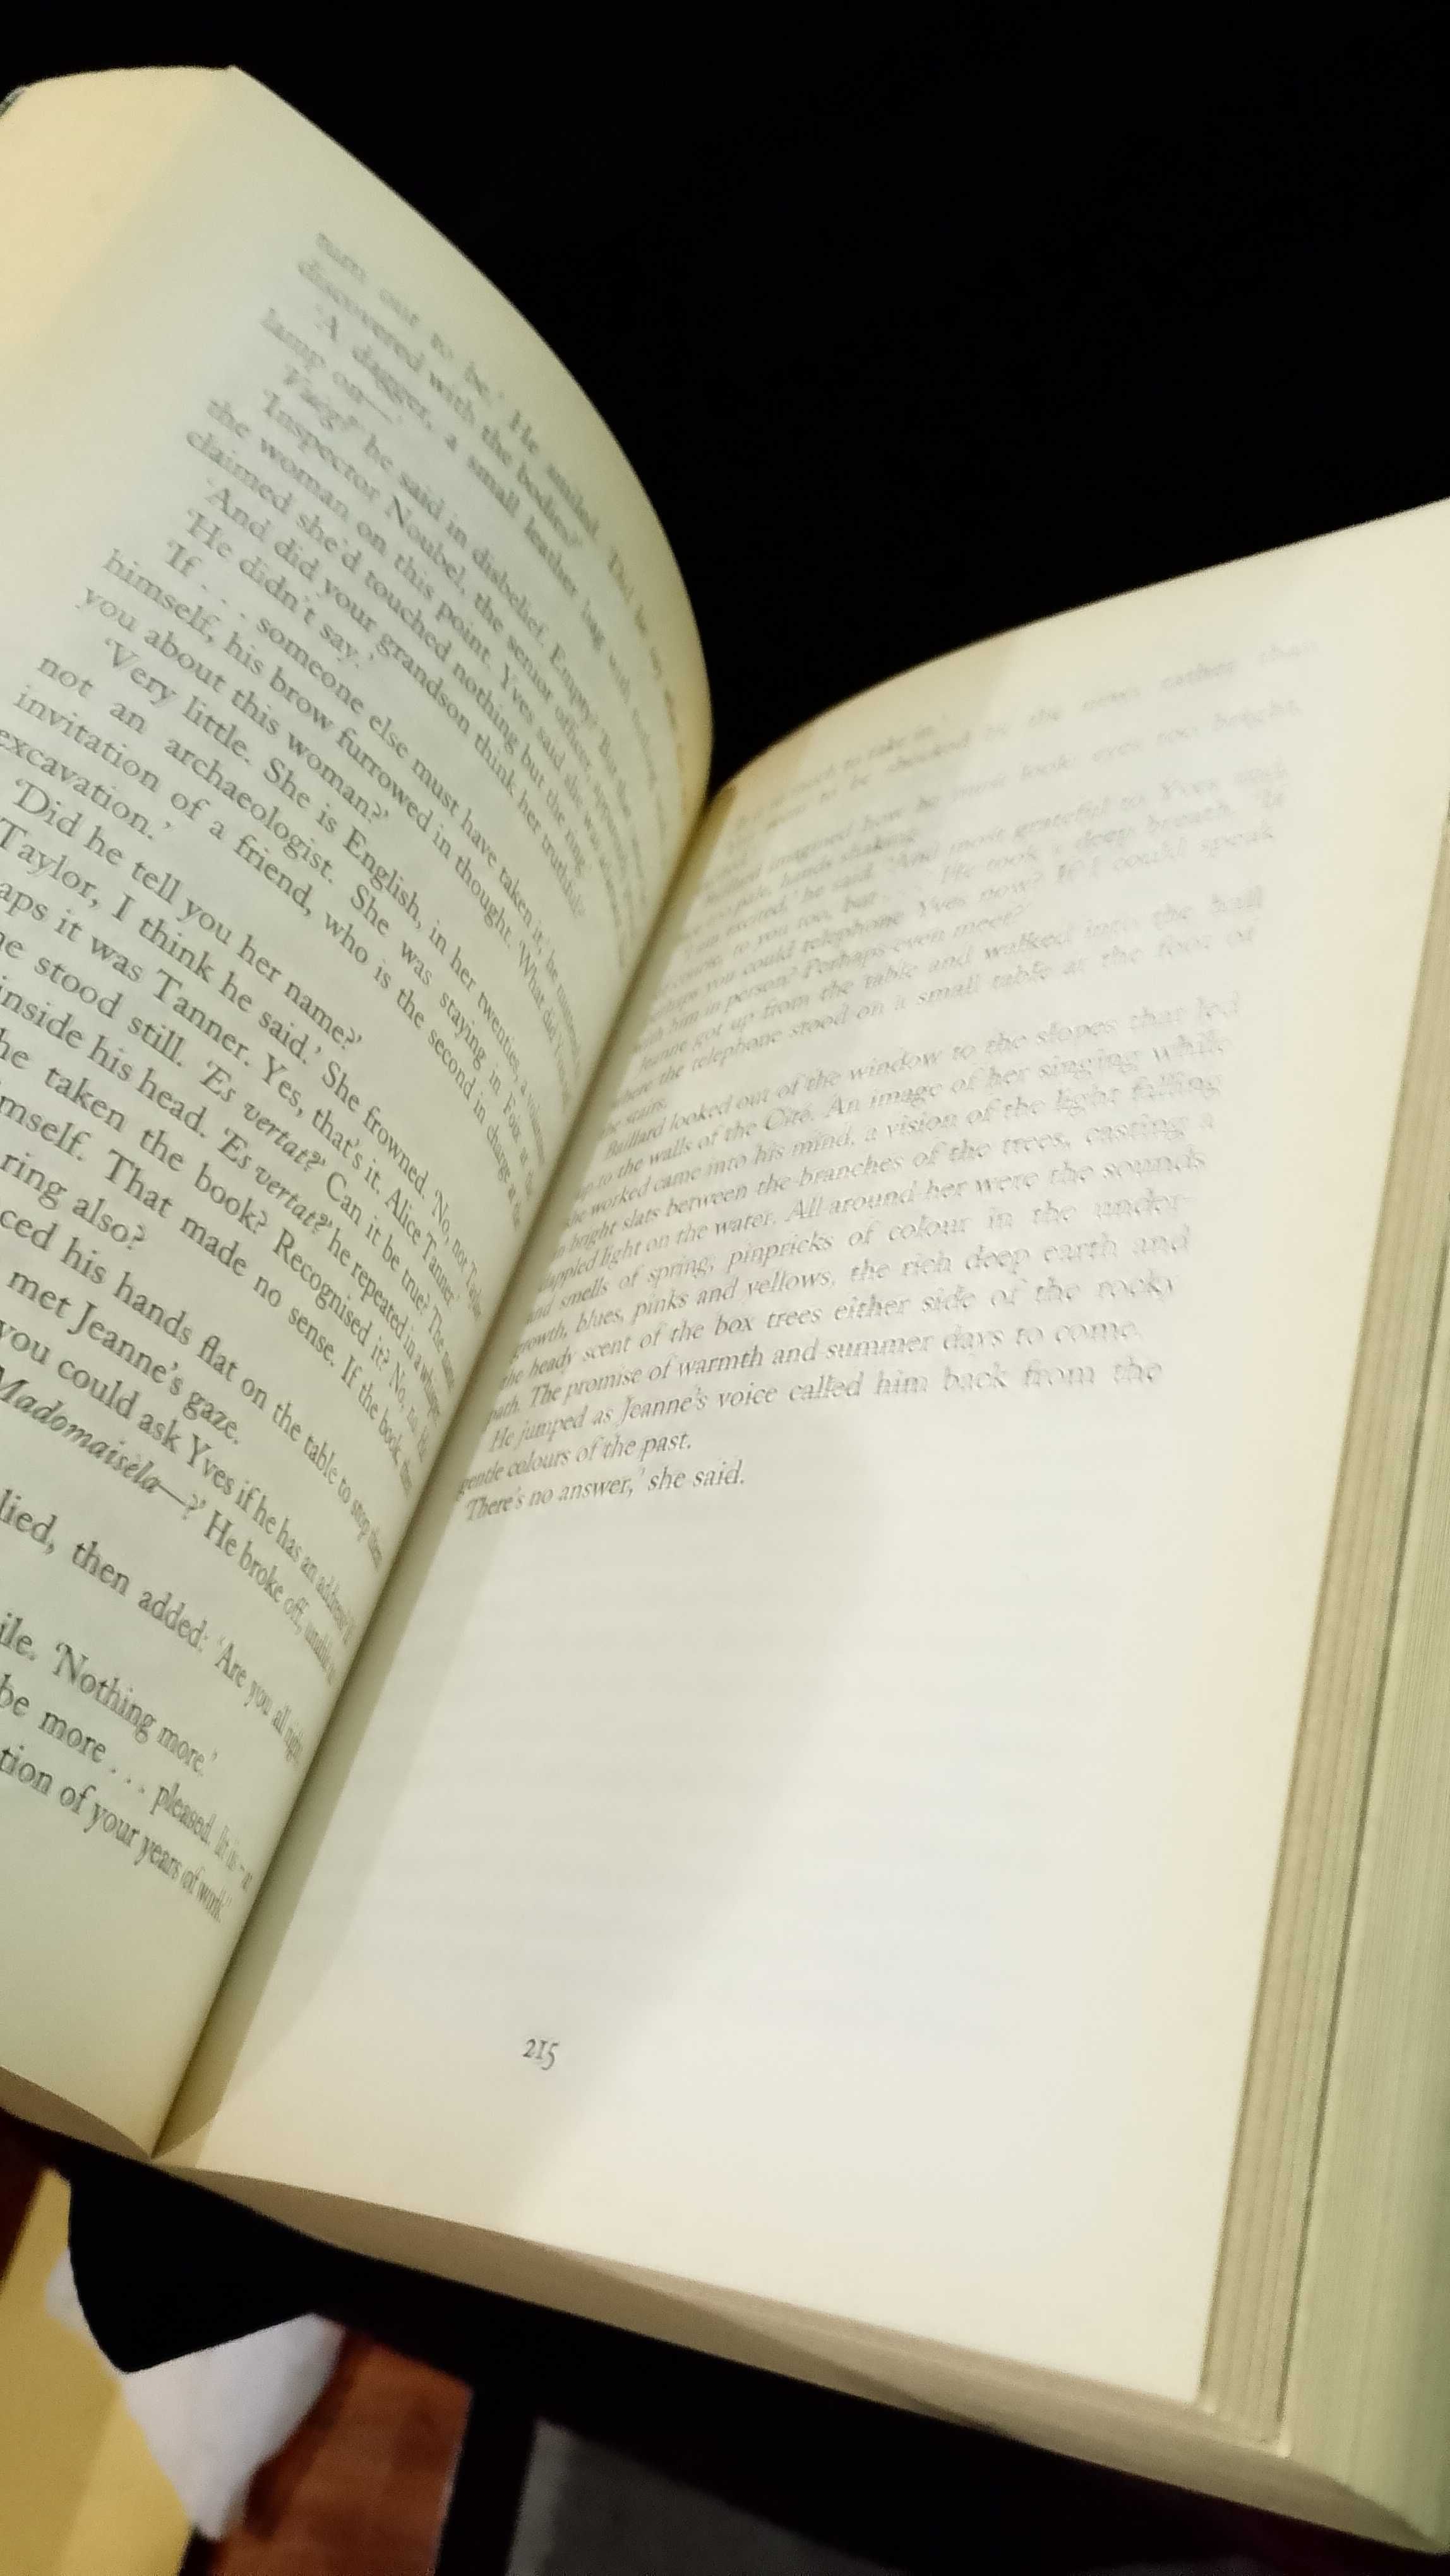 turn out to be.' He smiled. 'Did he say what
discovered with the bodies?'
'A dagger, a small leather bag with nothing
lamp on—'
'Vuèg?' he said in disbelief. 'Empty? But the
'Inspector Noubel, the senior officer, apparently
the woman on this point. Yves said she was adamant
claimed she'd touched nothing but the ring.'
'And did your grandson think her truthful?'
'He didn't say.'
'If . . . someone else must have taken it,' he
himself, his brow furrowed in thought. 'What did Yves
you about this woman?'
'Very little. She is English, in her twenties, a volunteer
not an archaeologist. She was staying in Foix at the
invitation of a friend, who is the second in charge at the
excavation.'
'Did he tell you her name?'
Taylor, I think he said.' She frowned. 'No, not Taylor
aps it was Tanner. Yes, that's it. Alice Tanner.'
e stood still. 'Es vertat?' Can it be true? The name
inside his head. 'Es vertat?' he repeated in a whisper.
he taken the book? Recognised it? No, no. He
mself. That made no sense. If the book, then
ring also?
ced his hands flat on the table to stop them
met Jeanne's gaze.
you could ask Yves if he has an address? If
Madomaisèla—?' He broke off, unable to
lied, then added: 'Are you all right
ile. 'Nothing more.'
be more . . . pleased. It is – a
tion of your years of work.'
much to take in.'
to be shocked by the news rather than
imagined how he must look: eyes too bright,
too pale, hands shaking.
'I am excited,' he said. 'And most grateful to Yves and,
of course, to you too, but . . .' He took a deep breath. 'If
perhaps you could telephone Yves now? If I could speak
with him in person? Perhaps even meet?'
Jeanne got up from the table and walked into the hall
where the telephone stood on a small table at the foot of
the stairs.
Baillard looked out of the window to the slopes that led
up to the walls of the Cité. An image of her singing while
she worked came into his mind, a vision of the light falling
in bright slats between the branches of the trees, casting a
dappled light on the water. All around her were the sounds
and smells of spring; pinpricks of colour in the under-
growth, blues, pinks and yellows, the rich deep earth and
the heady scent of the box trees either side of the rocky
path. The promise of warmth and summer days to come.
He jumped as Jeanne's voice called him back from the
gentle colours of the past.
'There's no answer,' she said.
215